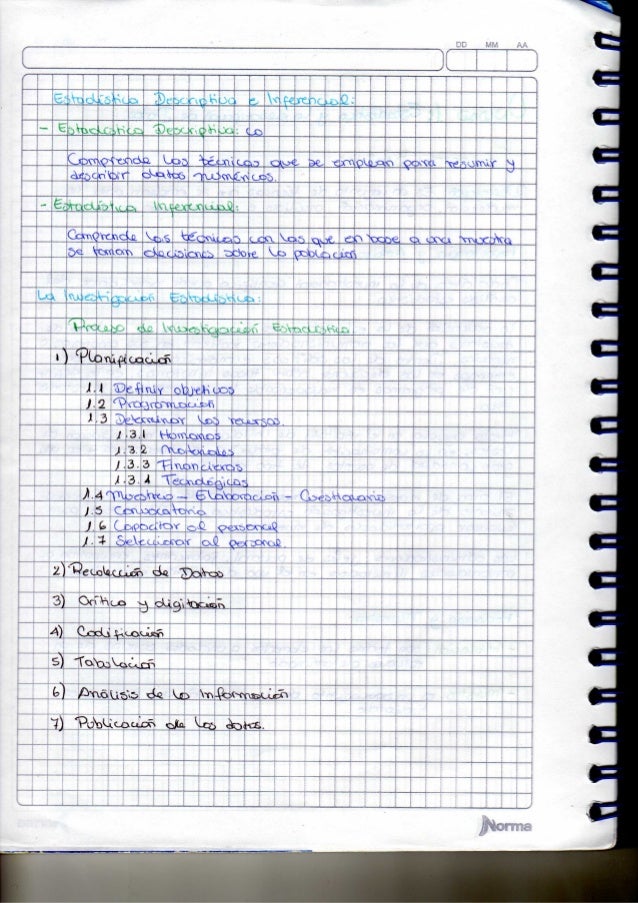 DD MM AA
Estadística Descriptiva e Inferencial:
- Estadística Descriptiva: Lo
Comprende las técnicas que se emplean para resumir y
describir datos numéricos.
- Estadística Inferencial:
Comprende las técnicas con las que en base a una muestra
se toman decisiones sobre la población
La Investigación Estadística:
Proceso de Investigación Estadística
1) Planificación
1.1 Definir objetivos
1.2 Programación
1.3 Determinar los recursos.
1.3.1 Homanos
1.3.2 Materiales
1.3.3 Financieros
1.3.4 Tecnológicos
1.4 Muestreo - Elaboración - Cuestionario
1.5 Convocatoria
1.6 Capacitar al personal
1.7 Seleccionar al personal.
2) Recolección de Datos
3) Crítica y digitación
4) Codificación
5) Tabulación
6) Análisis de la Información
7) Publicación de los datos.
Norma